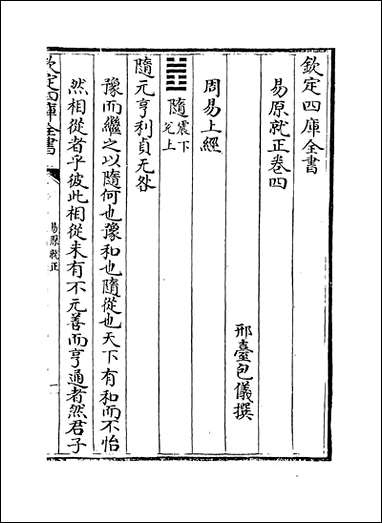 欽定四庫全書
易原就正卷四
邢臺包儀撰
周易上經
䷐隨 震下兌上
隨元亨利貞无咎
豫而繼之以隨何也豫和也隨從也天下有和而不怡
然相從者乎彼此相從未有不元善而亨通者然君子
欽定四庫全書
易原就正
一